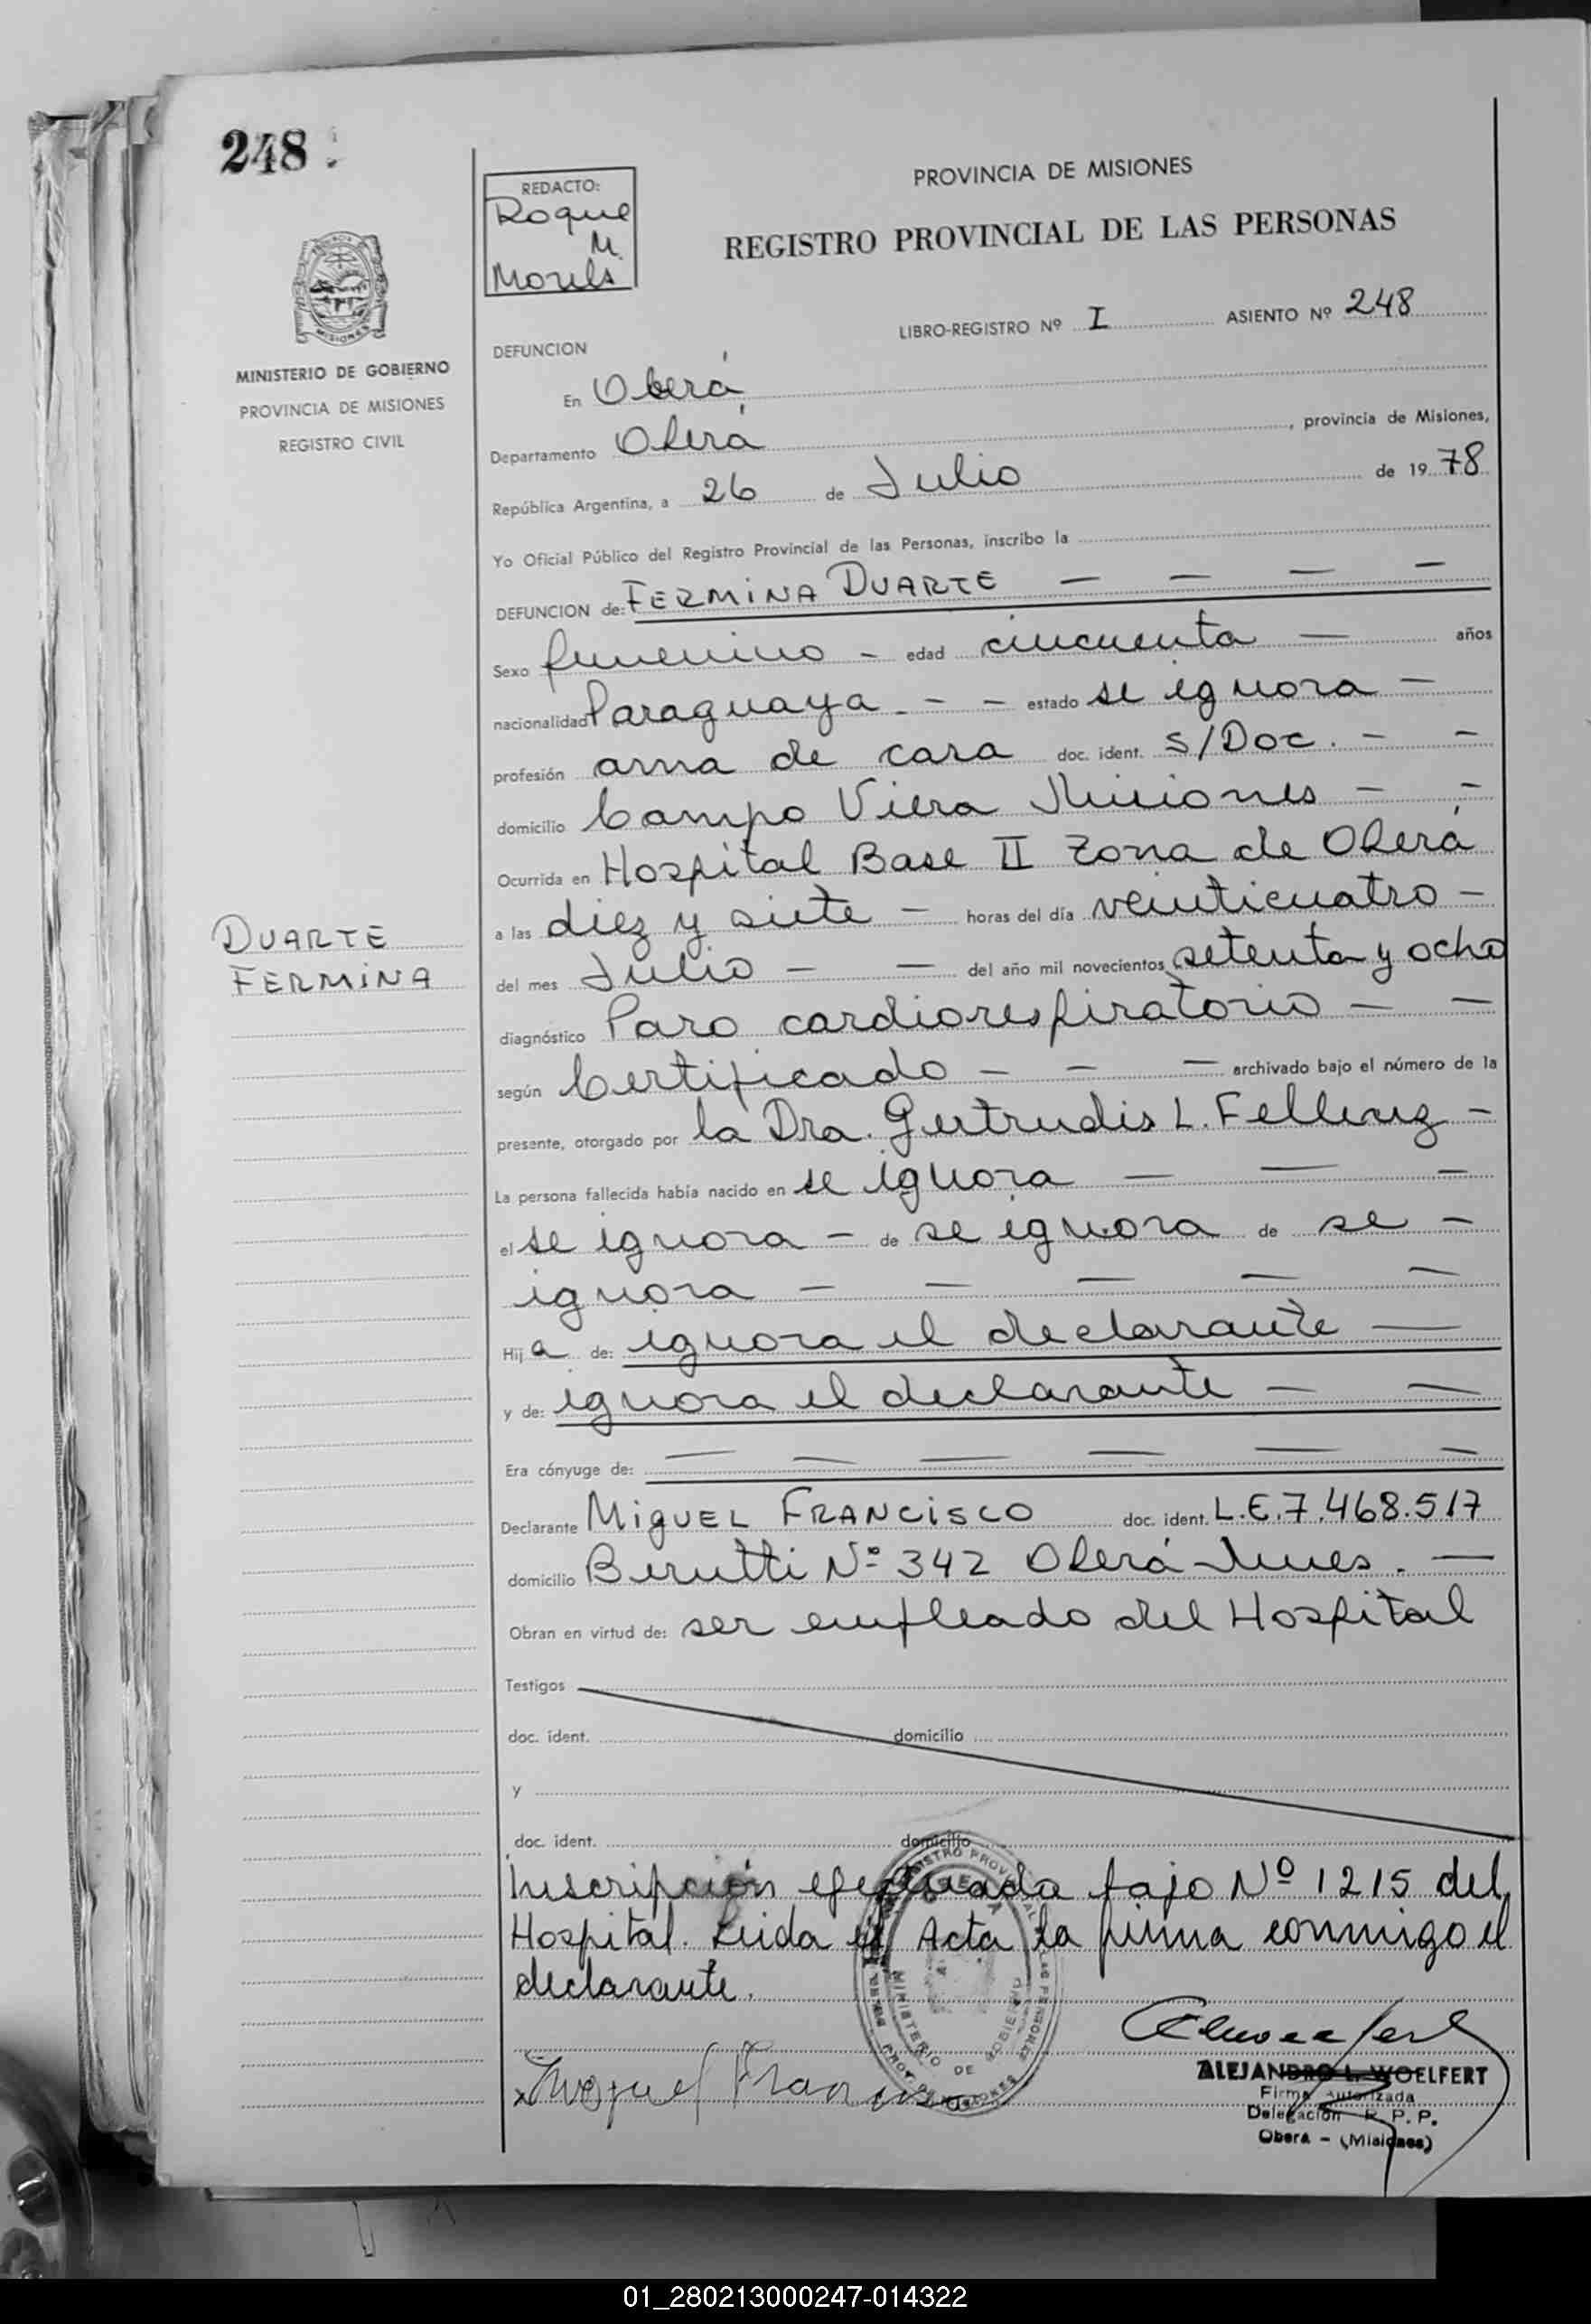 248
REDACTO:
Roque
M.
Morels
PROVINCIA DE MISIONES
REGISTRO PROVINCIAL DE LAS PERSONAS
LIBRO-REGISTRO Nº I ASIENTO Nº 248
MISIONES
MINISTERIO DE GOBIERNO
PROVINCIA DE MISIONES
REGISTRO CIVIL
DEFUNCION
En Oberá
Departamento Oberá, provincia de Misiones,
República Argentina, a 26 de Julio de 1978
Yo Oficial Público del Registro Provincial de las Personas, inscribo la
DEFUNCION de: FERMINA DUARTE — — — —
Sexo femenino - edad cincuenta — años
nacionalidad Paraguaya - - - estado se ignora -
profesión ama de casa doc. ident. S/Doc. - -
domicilio Campo Viera Misiones - -
Ocurrida en Hospital Base II Zona de Oberá
a las diez y siete - horas del día veinticuatro -
DUARTE
FERMINA
del mes Julio - - del año mil novecientos setenta y ocho
diagnóstico Paro cardiorespiratorio — —
según Certificado - - — archivado bajo el número de la
presente, otorgado por la Dra. Gertrudis L. -
La persona fallecida había nacido en se ignora — — —
el se ignora - de se ignora de se -
ignora — — — — —
Hija de: ignora el declarante —
y de: ignora el declarante — —
Era cónyuge de: — — — — — —
Declarante MIGUEL FRANCISCO doc. ident. L.E.7.468.517
domicilio Berutti Nº 342 Oberá Mnes. —
Obran en virtud de: ser empleado del Hospital
Testigos
doc. ident. domicilio
y
doc. ident. domicilio
Inscripción efectuada bajo Nº 1215 del
Hospital. Leida el Acta la firma conmigo el
declarante.
MINISTERIO DE GOBIERNO
Miguel Francisco
ALEJANDRO L. WOELFERT
Firma Autorizada
Delegación R. P. P.
Oberá - (Misiones)
01_280213000247-014322